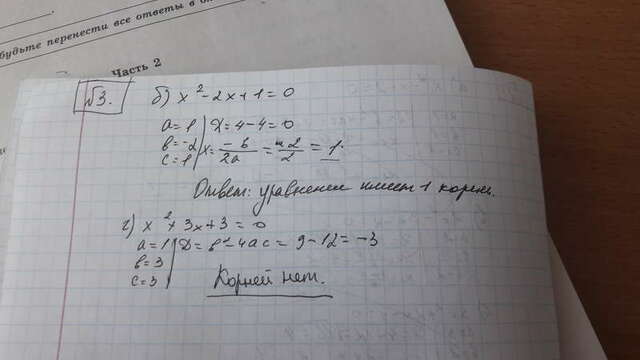 будьте перенести все ответы в
Часть 2
№3.
б) x² - 2x + 1 = 0
a = 1 D = 4 - 4 = 0
b = -2 x = -b/2a = 2/2 = 1.
c = 1
Ответ: уравнение имеет 1 корень.
г) x² + 3x + 3 = 0
a = 1 D = b² - 4ac = 9 - 12 = -3
b = 3
c = 3
Корней нет.